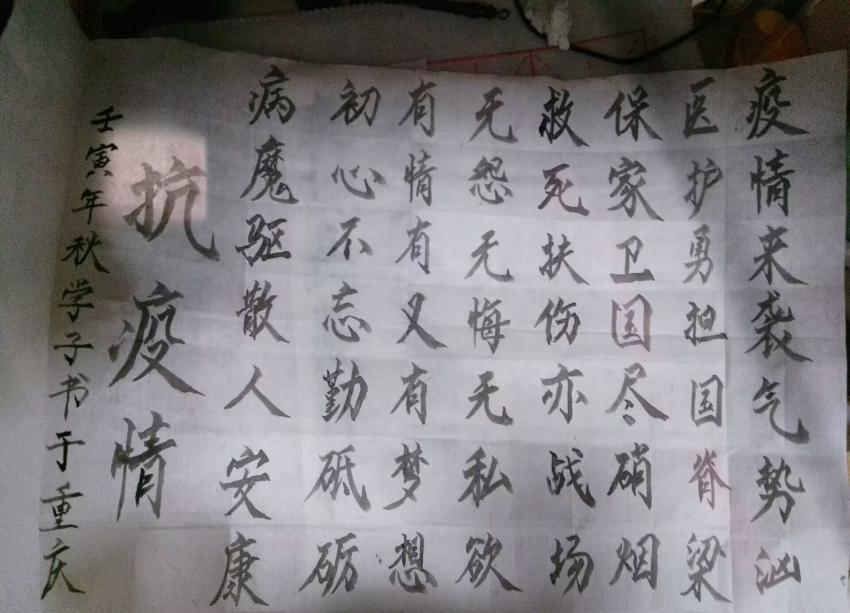 疫情来袭气势汹
医护勇担国脊梁
保家卫国尽硝烟
救死扶伤亦战场
无怨无悔无私欲
有情有义有梦想
初心不忘勤砥砺
病魔驱散人安康
抗疫情
壬寅年秋学子书于重庆